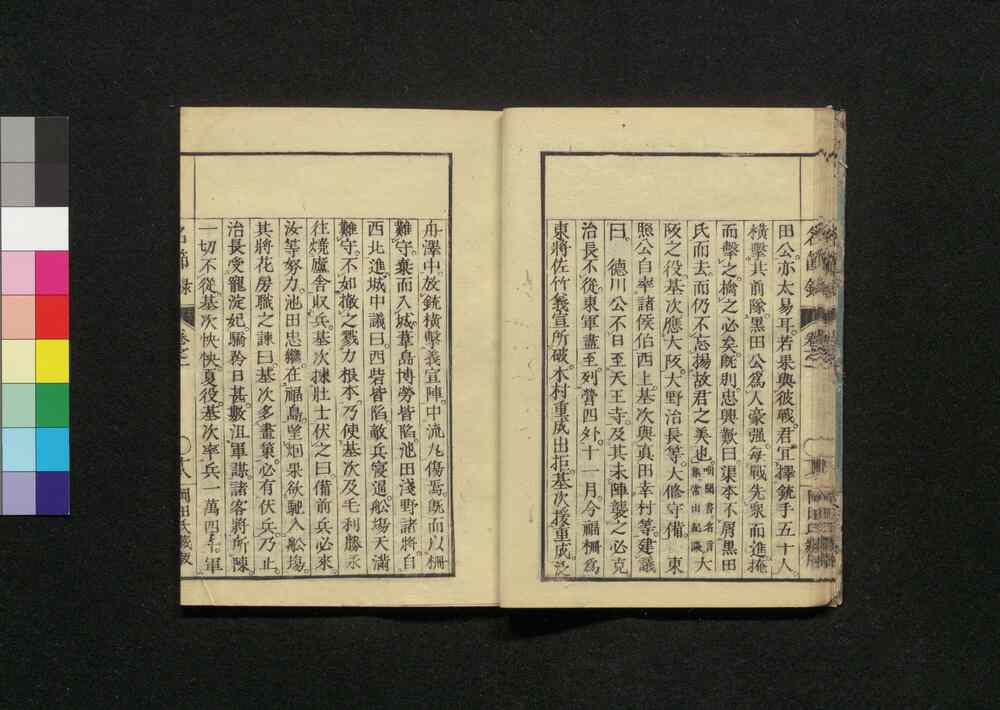 田公。亦太易耳。若果與彼戰。君宜擇銃手五十人。
橫擊其前隊。黑田公爲人豪强。每戰先衆而進。掩
而擊之。擒之必矣。既別。忠興歎曰。渠本不屑黑田
氏而去。而仍不忘揚故君之美也。
大
阪之役。基次應大阪。大野治長等。大修守備。 東
照公自率諸侯伯西上。基次與眞田幸村等。建議
曰。 德川公不日至天王寺。及其未陣襲之必克。
治長不從。東軍盡至。列營四外。十一月。今福柵爲
東將佐竹義宣所破。木村重成出拒。基次援重成。泛
舟澤中。放銃橫擊義宣陣。中流丸傷焉。既而以柵
難守。棄而入城。葦島博勞皆陷。池田淺野諸將。自
西北進。城中議曰。西砦皆陷。敵兵寖逼。船場天滿
難守。不如撤之戮力根本。乃使基次及毛利勝永
往燒廬舍收兵。基次揀壯士伏之曰。備前兵必來。
汝等努力。池田忠繼。在福島望烟。果欲馳入船場。
其將花房職之諫曰。基次多畫策。必有伏兵。乃止。
治長受寵淀妃。驕矜日甚。數沮軍謀。諸客將所陳
一切不從。基次怏怏。夏役。基次率兵一萬四千。軍
名節錄
卷之二
十八
岡田氏藏板